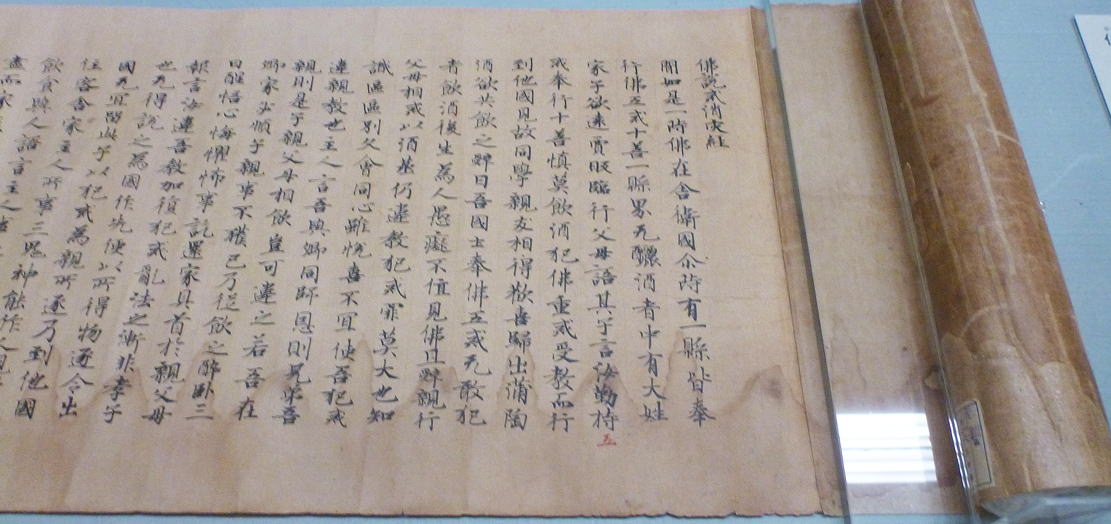 佛說戒消灾經
聞如是一時佛在舍衛國尒時有一縣皆奉
行佛五戒十善一縣界无釀酒者中有大姓
家子欲遠賈販臨行父母語其子言汝勤持
五
戒奉行十善慎莫飲酒犯佛重戒受教而行
到他國見故同學親友相得歡喜歸出蒲陶
酒欲共飲之辭曰吾國士奉佛五戒无敢犯
者飲酒後生為人愚癡不值見佛且辭親行
父母相戒以酒並仍違教犯戒罪莫大也知
識區區別久會同心雖悅喜不宜使吾犯戒
違親教也主人言吾與卿同師恩則兄弟吾
親則是子親父母相飲豈可違之若吾在
卿家必順子親事不獲已乃從飲之醉臥三
日醒悟心悔懼怖事訖還家具首於親父母
報言汝違吾教加復犯戒亂法之漸非孝子
也无得說之為國作先便以所得物逐令出
國无宜留此子以犯戒為親所逐乃到他國
住客舍家主人所事三鬼神能作人現
飲食與人語言主之
盡而家